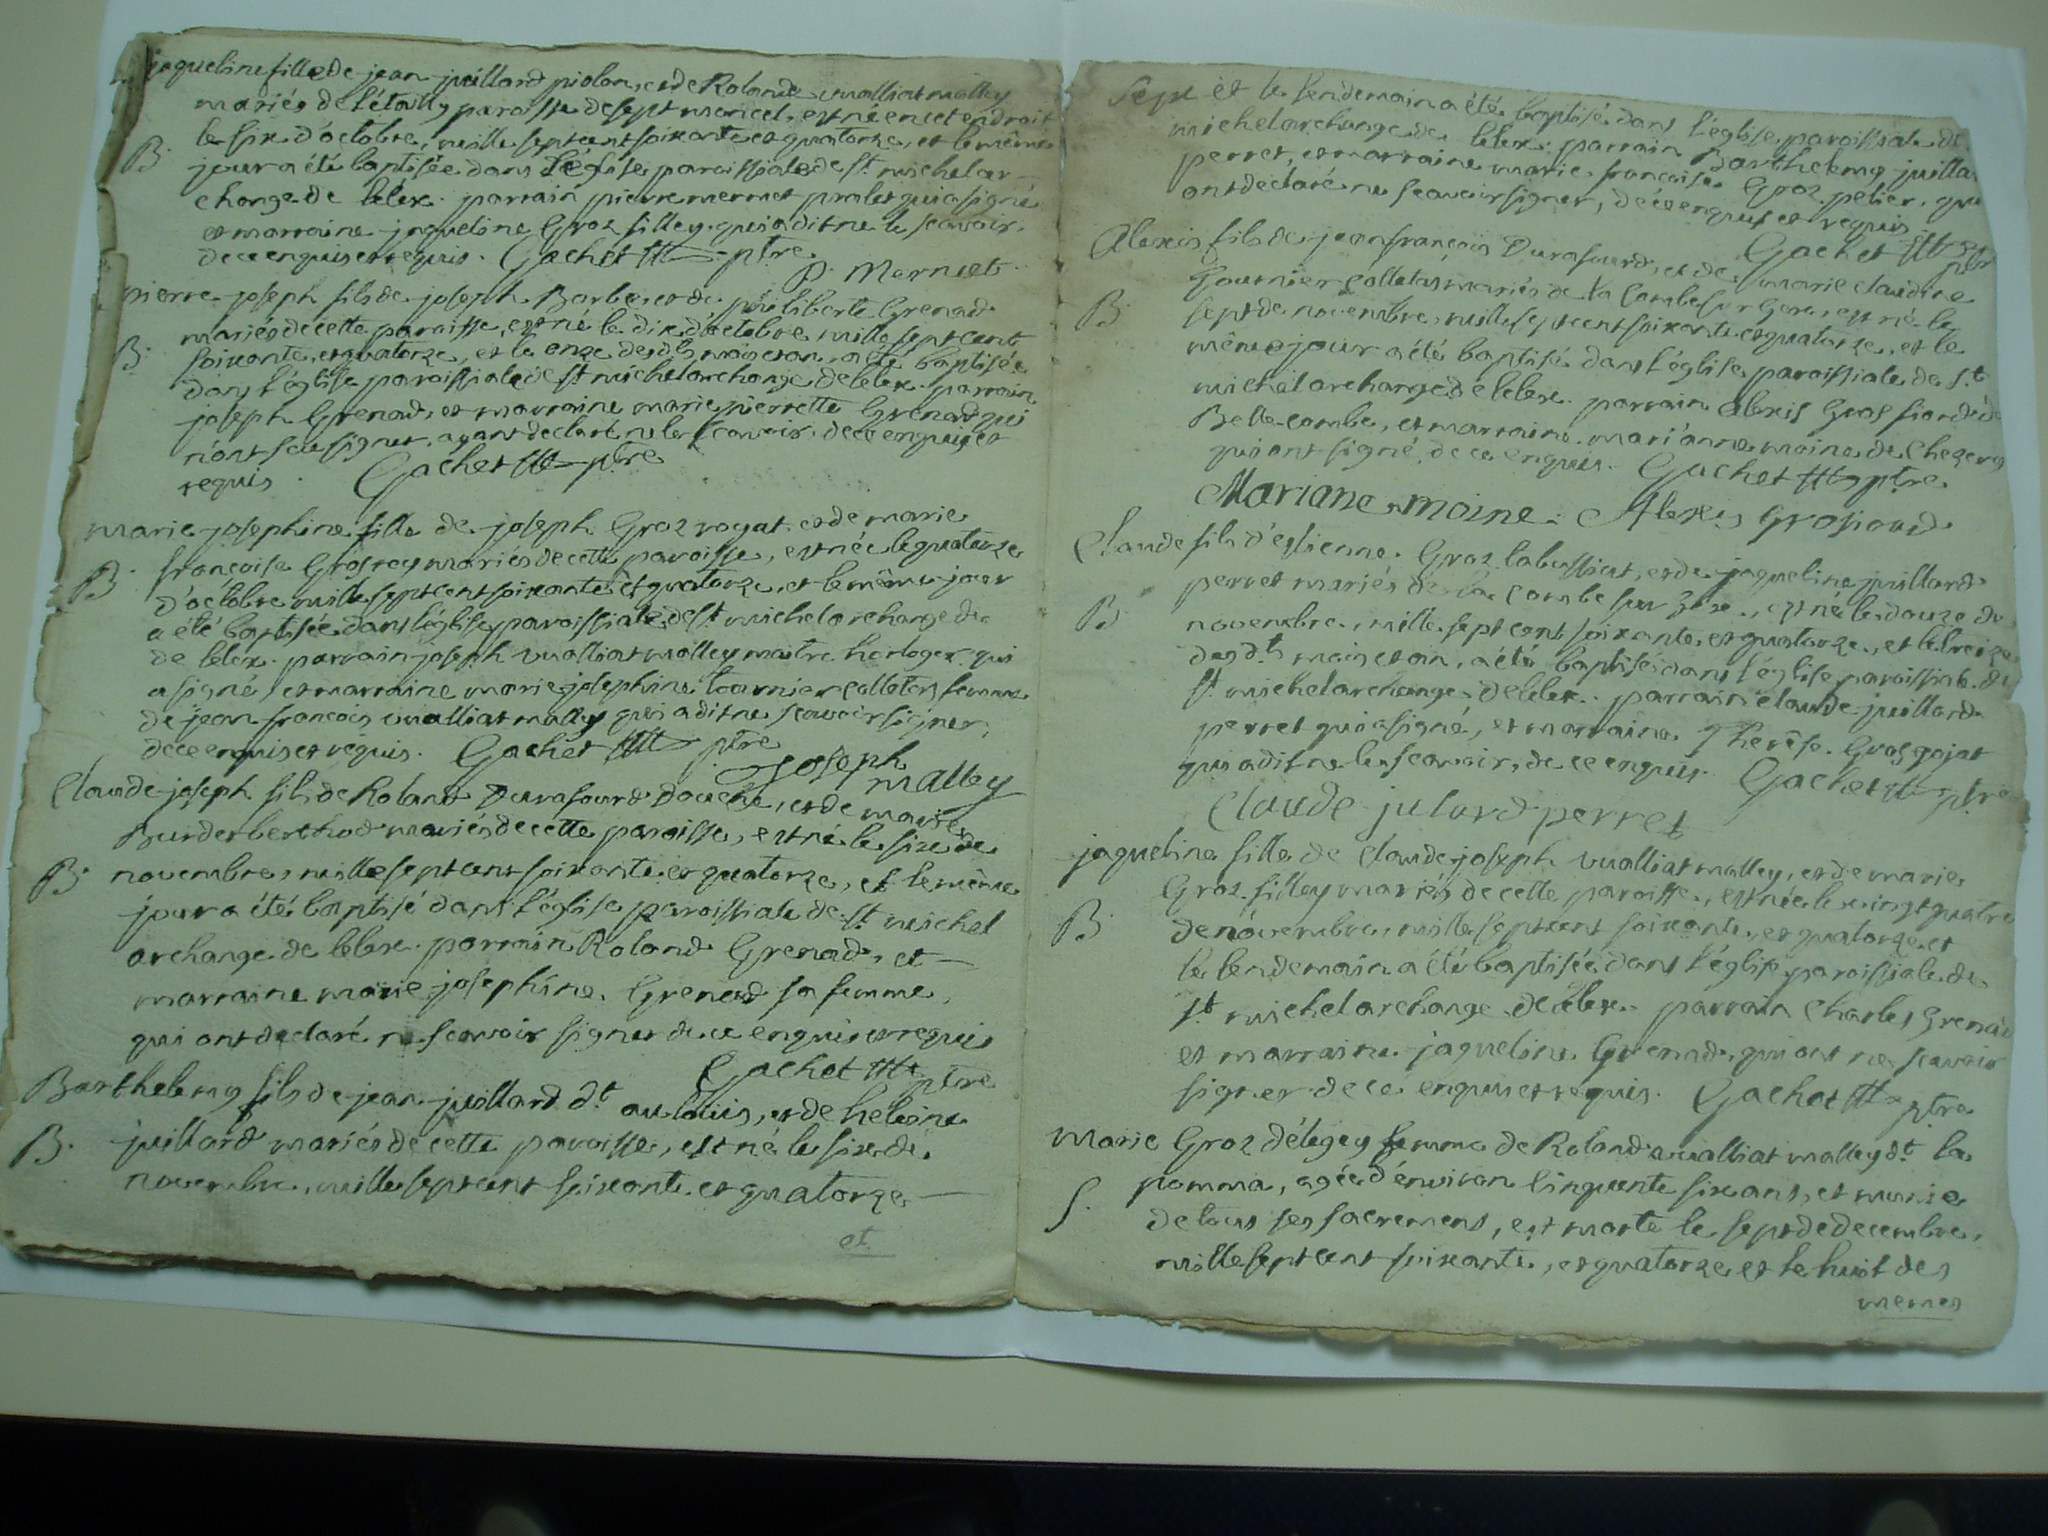 jaqueline fille de jean juillard piolon, et de Rolande vualliat malley
mariés de l'étally paroisse de sept moncel, est né en cet endroit
B. le six d'octobre, mille sept cent soixante et quatorze, et le même
jour a été baptisée dans l'église paroissiale de st. michel ar-
change de lélex. parrain pierre mermet pralet qui a signé
et marraine jaqueline Groz filley qui a dit ne le scavoir,
de ce enquis et requis. Gachet ptre
P. Mermet
pierre joseph fils de joseph Barbe, et de philiberte Grenad
mariés de cette paroisse, est né le dix d'octobre, mille sept cent
B. soixante et quatorze, et le onze desdts mois et an, a été baptisée
dans l'église paroissiale de st. michel archange de lelex. parrain
joseph Grenad, et marraine marie pierrette Grenad qui
n'ont sçu signer, ayant declaré ne le scavoir, de ce enquis et
requis. Gachet ptre
marie josephine fille de joseph Groz royat et de marie
françoise Grosrey mariés de cette paroisse, est née le quatorze
B. d'octobre mille sept cent soixante et quatorze, et le même jour
a été baptisée dans l'église paroissiale de st. michel archange de
de lelex. parrain joseph vualliat malley maitre horloger qui
a signé, et marraine marie josephine tournier colletas femme
de jean françois vualliat malley qui a dit ne scavoir signer,
de ce enquis et requis. Gachet ptre
Joseph malley
Claude joseph fils de Roland Durafourd Douche, et de marie
Burder berthod mariés de cette paroisse, est né le six de
B. novembre, mille sept cent soixante et quatorze, et le même
jour a été baptisé dans l'église paroissiale de st. michel
archange de lelex. parrain Roland Grenad, et
marraine marie josephine Grenad sa femme,
qui ont declaré ne scavoir signer de ce enquis et requis
Gachet ptre
Barthelemy fils de jean juillard dt. au louis, et de heleine
B. juillard mariés de cette paroisse, est né le six de
novembre, mille sept cent soixante et quatorze
et
Sept et le lendemain a été baptisé dans l'église paroissiale de
michel archange de lelex. parrain Barthelemy juilla
perret, et marraine marie françoise Groz pelier. qui
ont déclaré ne scavoir signer, de ce enquis et requis
Gachet ptre
Alexis fils de jean françois Durafourd, et de marie claudine
tournier colletas mariés de la Combe sur gere, est né le
B. sept de novembre, mille sept cent soixante et quatorze, et le
même jour a été baptisé dans l'église paroissiale de st.
michel archange de lelex. parrain alexis Gros fiard de
Belle-combe, et marraine mari'anne moine de Chezery
qui ont signé, de ce enquis. Gachet ptre
Mariane moine. Alexis Grosfiard
Claude fils d'estienne Groz labussiat, et de jaqueline juillard
perret mariés de la Combe sur gere, est né le douze de
B. novembre, mille sept cent soixante et quatorze, et le treize
desdts mois et an, a été baptisé dans l'église paroissiale de
st. michel archange de lelex. parrain claude juillard
perret qui a signé, et marraine Therêse Gros gojat
qui a dit ne le scavoir, de ce enquis. Gachet ptre
Claude julard perret
jaqueline fille de Claude joseph vualliat malley, et de marie
Groz filley mariés de cette paroisse, est née le vingt quatre
B. de novembre, mille sept cent soixante et quatorze et
le lendemain a été baptisée dans l'église paroissiale de
st. michel archange de lelex. parrain Charles Grenad
et marraine jaqueline Grenad, qui ont ne scavoir
signer de ce enquis et requis. Gachet ptre
Marie Groz délegey femme de Roland vualliat malley dt. la
pomma, agée d'environ cinquante six ans, et munie
S. de tous ses sacremens, est morte le sept de decembre,
mille sept cent soixante, et quatorze et le huit des
memes